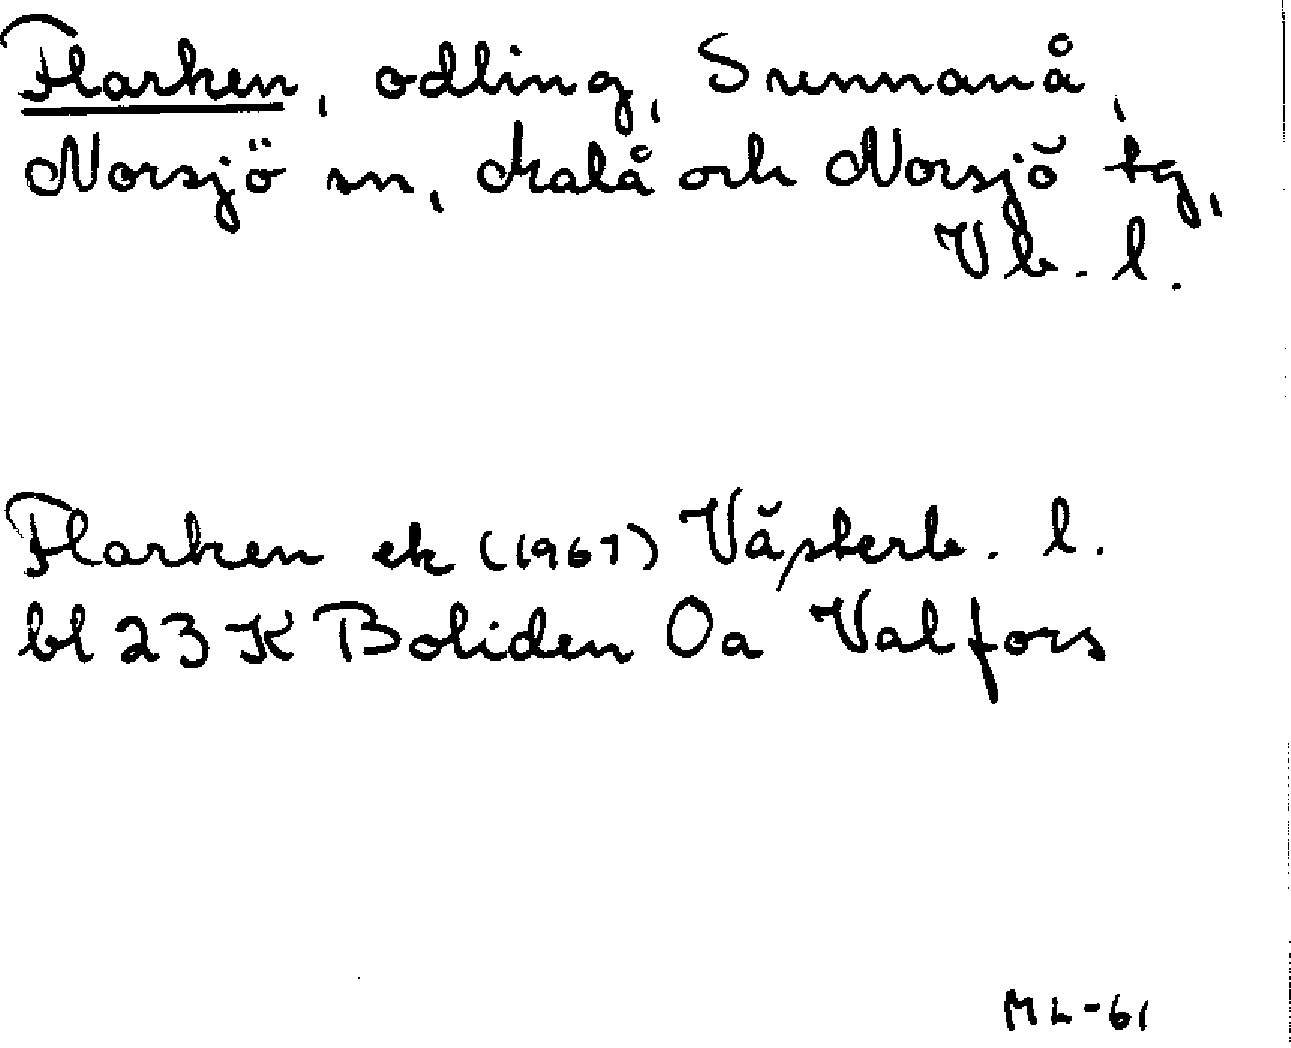 Flarken, odling, Svennanå,
Norsjö sn, Malå och Norsjö tg,
Vb. l.
Flarken ek (1967) Västerb. l.
bl 23 K Boliden 0a Valfors
ML-61